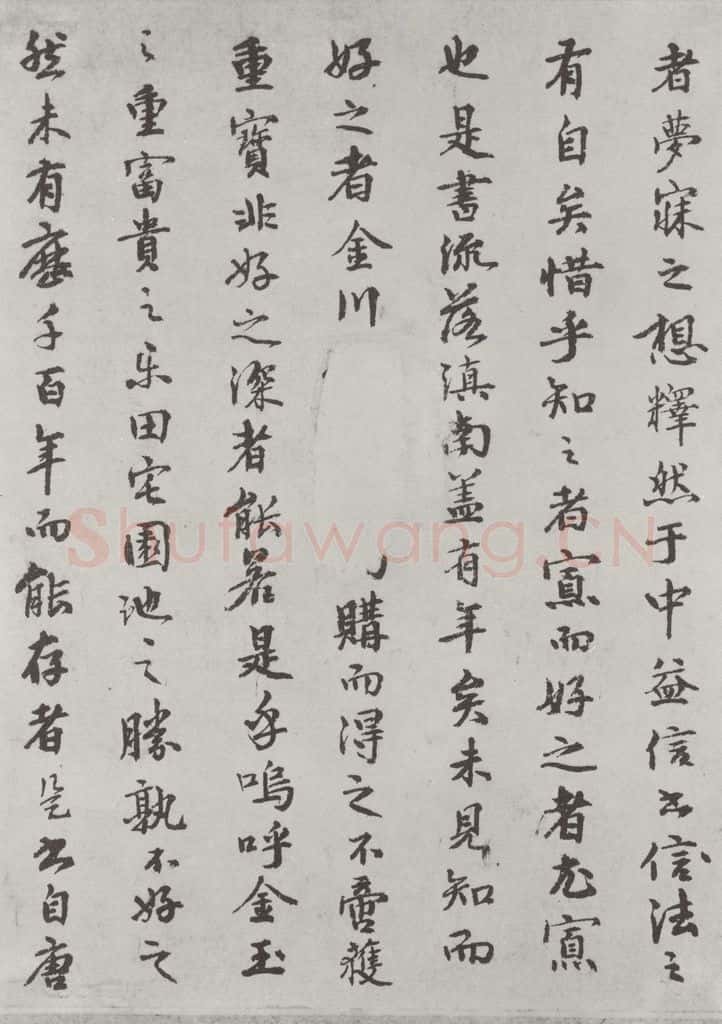 者夢寐之想釋然于中益信書信法之
有自矣惜乎知之者寡而好之者尤寡
也是書流落滇南盖有年矣未見知而
好之者金川
購而得之不啻獲
重寶非好之深者能若是乎嗚呼金玉
之重富貴之樂田宅園池之勝孰不好之
然未有歷千百年而能存者是書自唐
Shufawang.CN